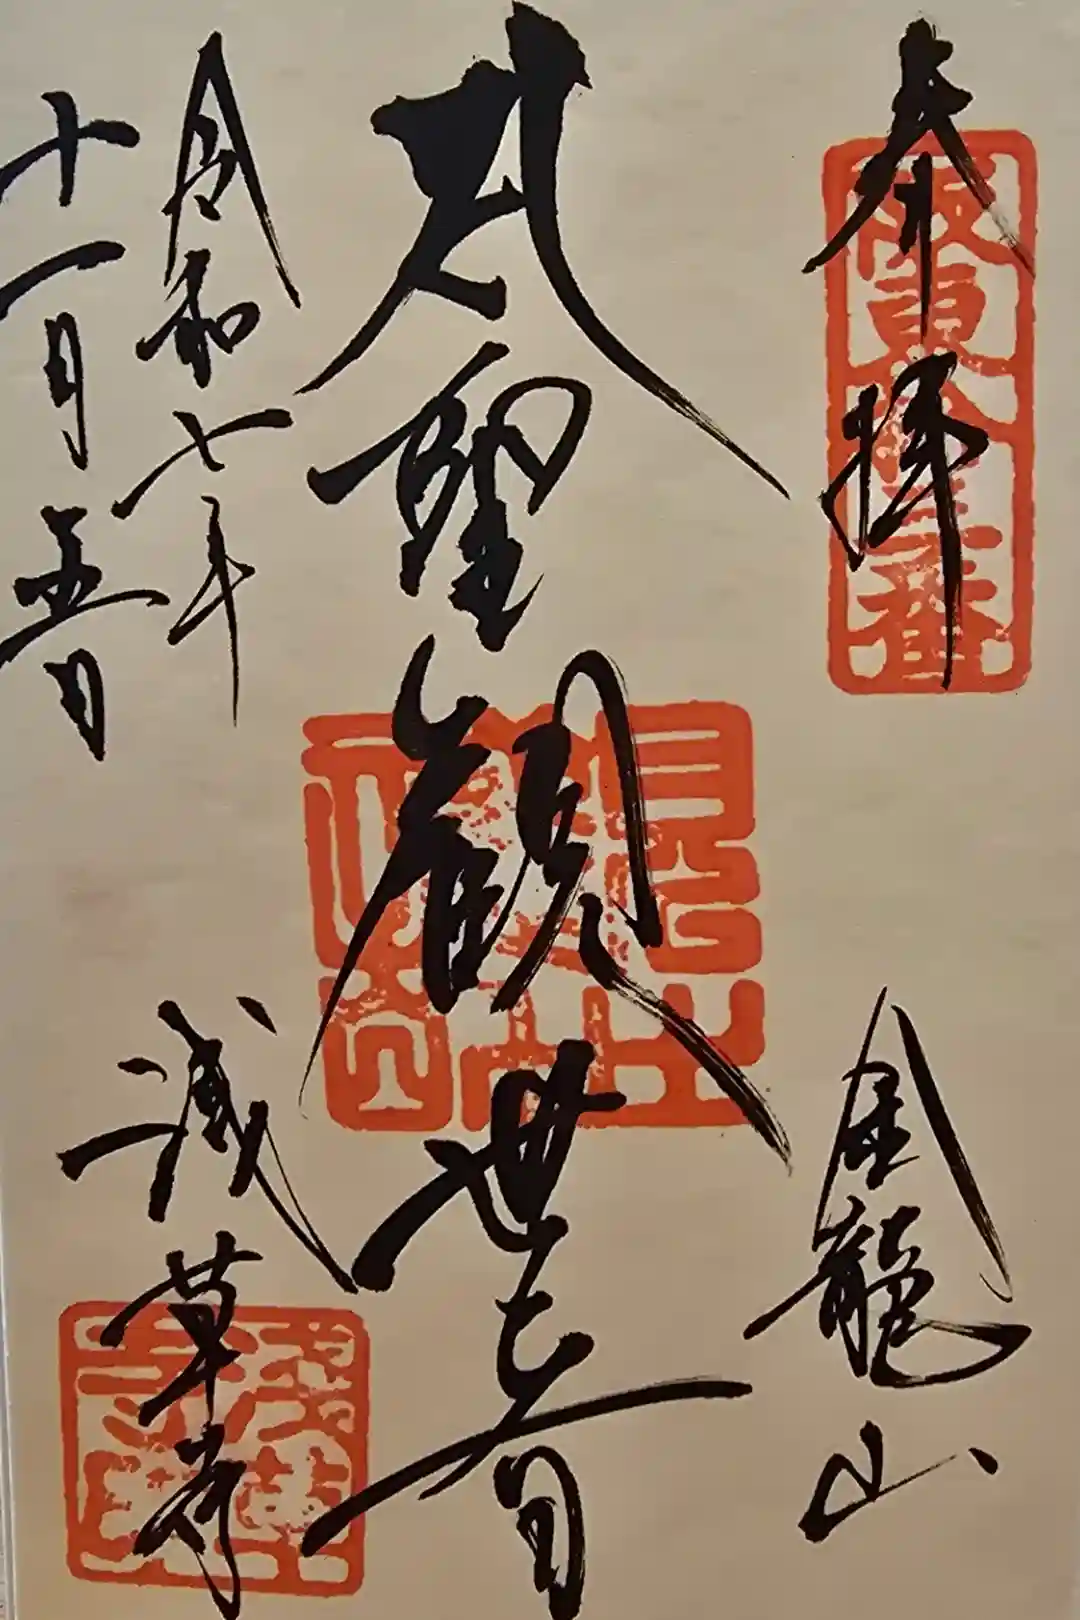 奉拝
坂東拾三番
金龍山
聖観世音
令和七年
十一月五日
浅草寺